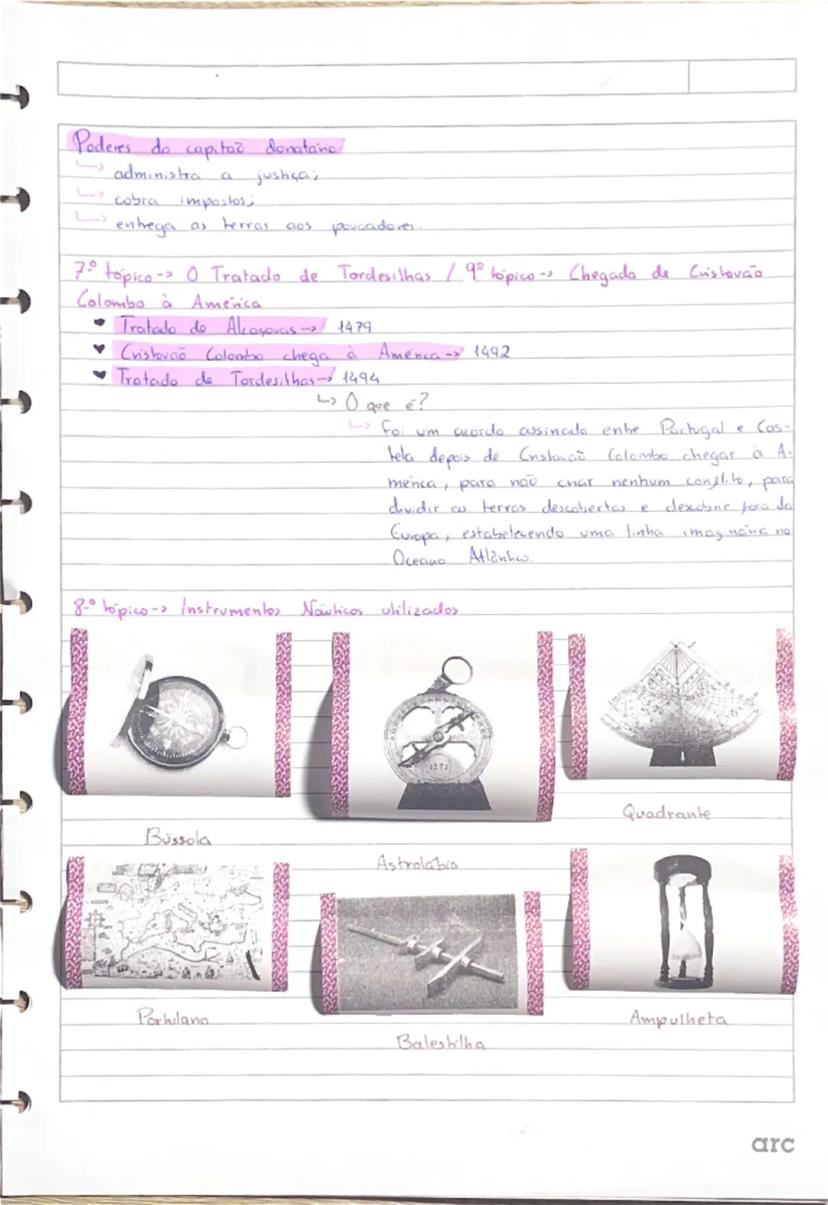 Poderes do capitão donatário
↳ administra a justiça;
↳ cobra impostos;
↳ entrega as terras aos povoadores.
7.º tópico-> O Tratado de Tordesilhas / 9.º tópico-> Chegada de Cristovão
Colombo à América
♥ Tratado de Alcáçovas-> 1479
♥ Cristovão Colombo chega à América-> 1492
♥ Tratado de Tordesilhas-> 1494
↳ O que é?
↳ Foi um acordo assinado entre Portugal e Cas-
tela depois de Cristovão Colombo chegar à A-
mérica, para não criar nenhum conflito, para
dividir as terras descobertas e descobrir fora da
Europa, estabelecendo uma linha imaginária no
Oceano Atlântico.
8.º tópico-> Instrumentos Naúticos utilizados
Bússola
Astrolábio
Quadrante
Portulano
Balestilha
Ampulheta
arc